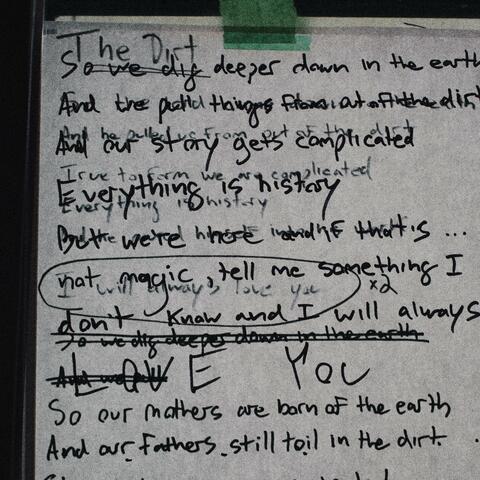 The Dirt
So we dig deeper down in the earth
And the pulld things from out of the dirt
And he pulled us from out of the dirt
And our story gets complicated
True to form we are complicated
Everything is history
Everything is history
But we're here
that is ...
not magic, tell me something I
I will always love you x2
don't know and I will always
So we dig deeper down in the earth
LOVE YOU
So our mothers are born of the earth
And our fathers still toil in the dirt.